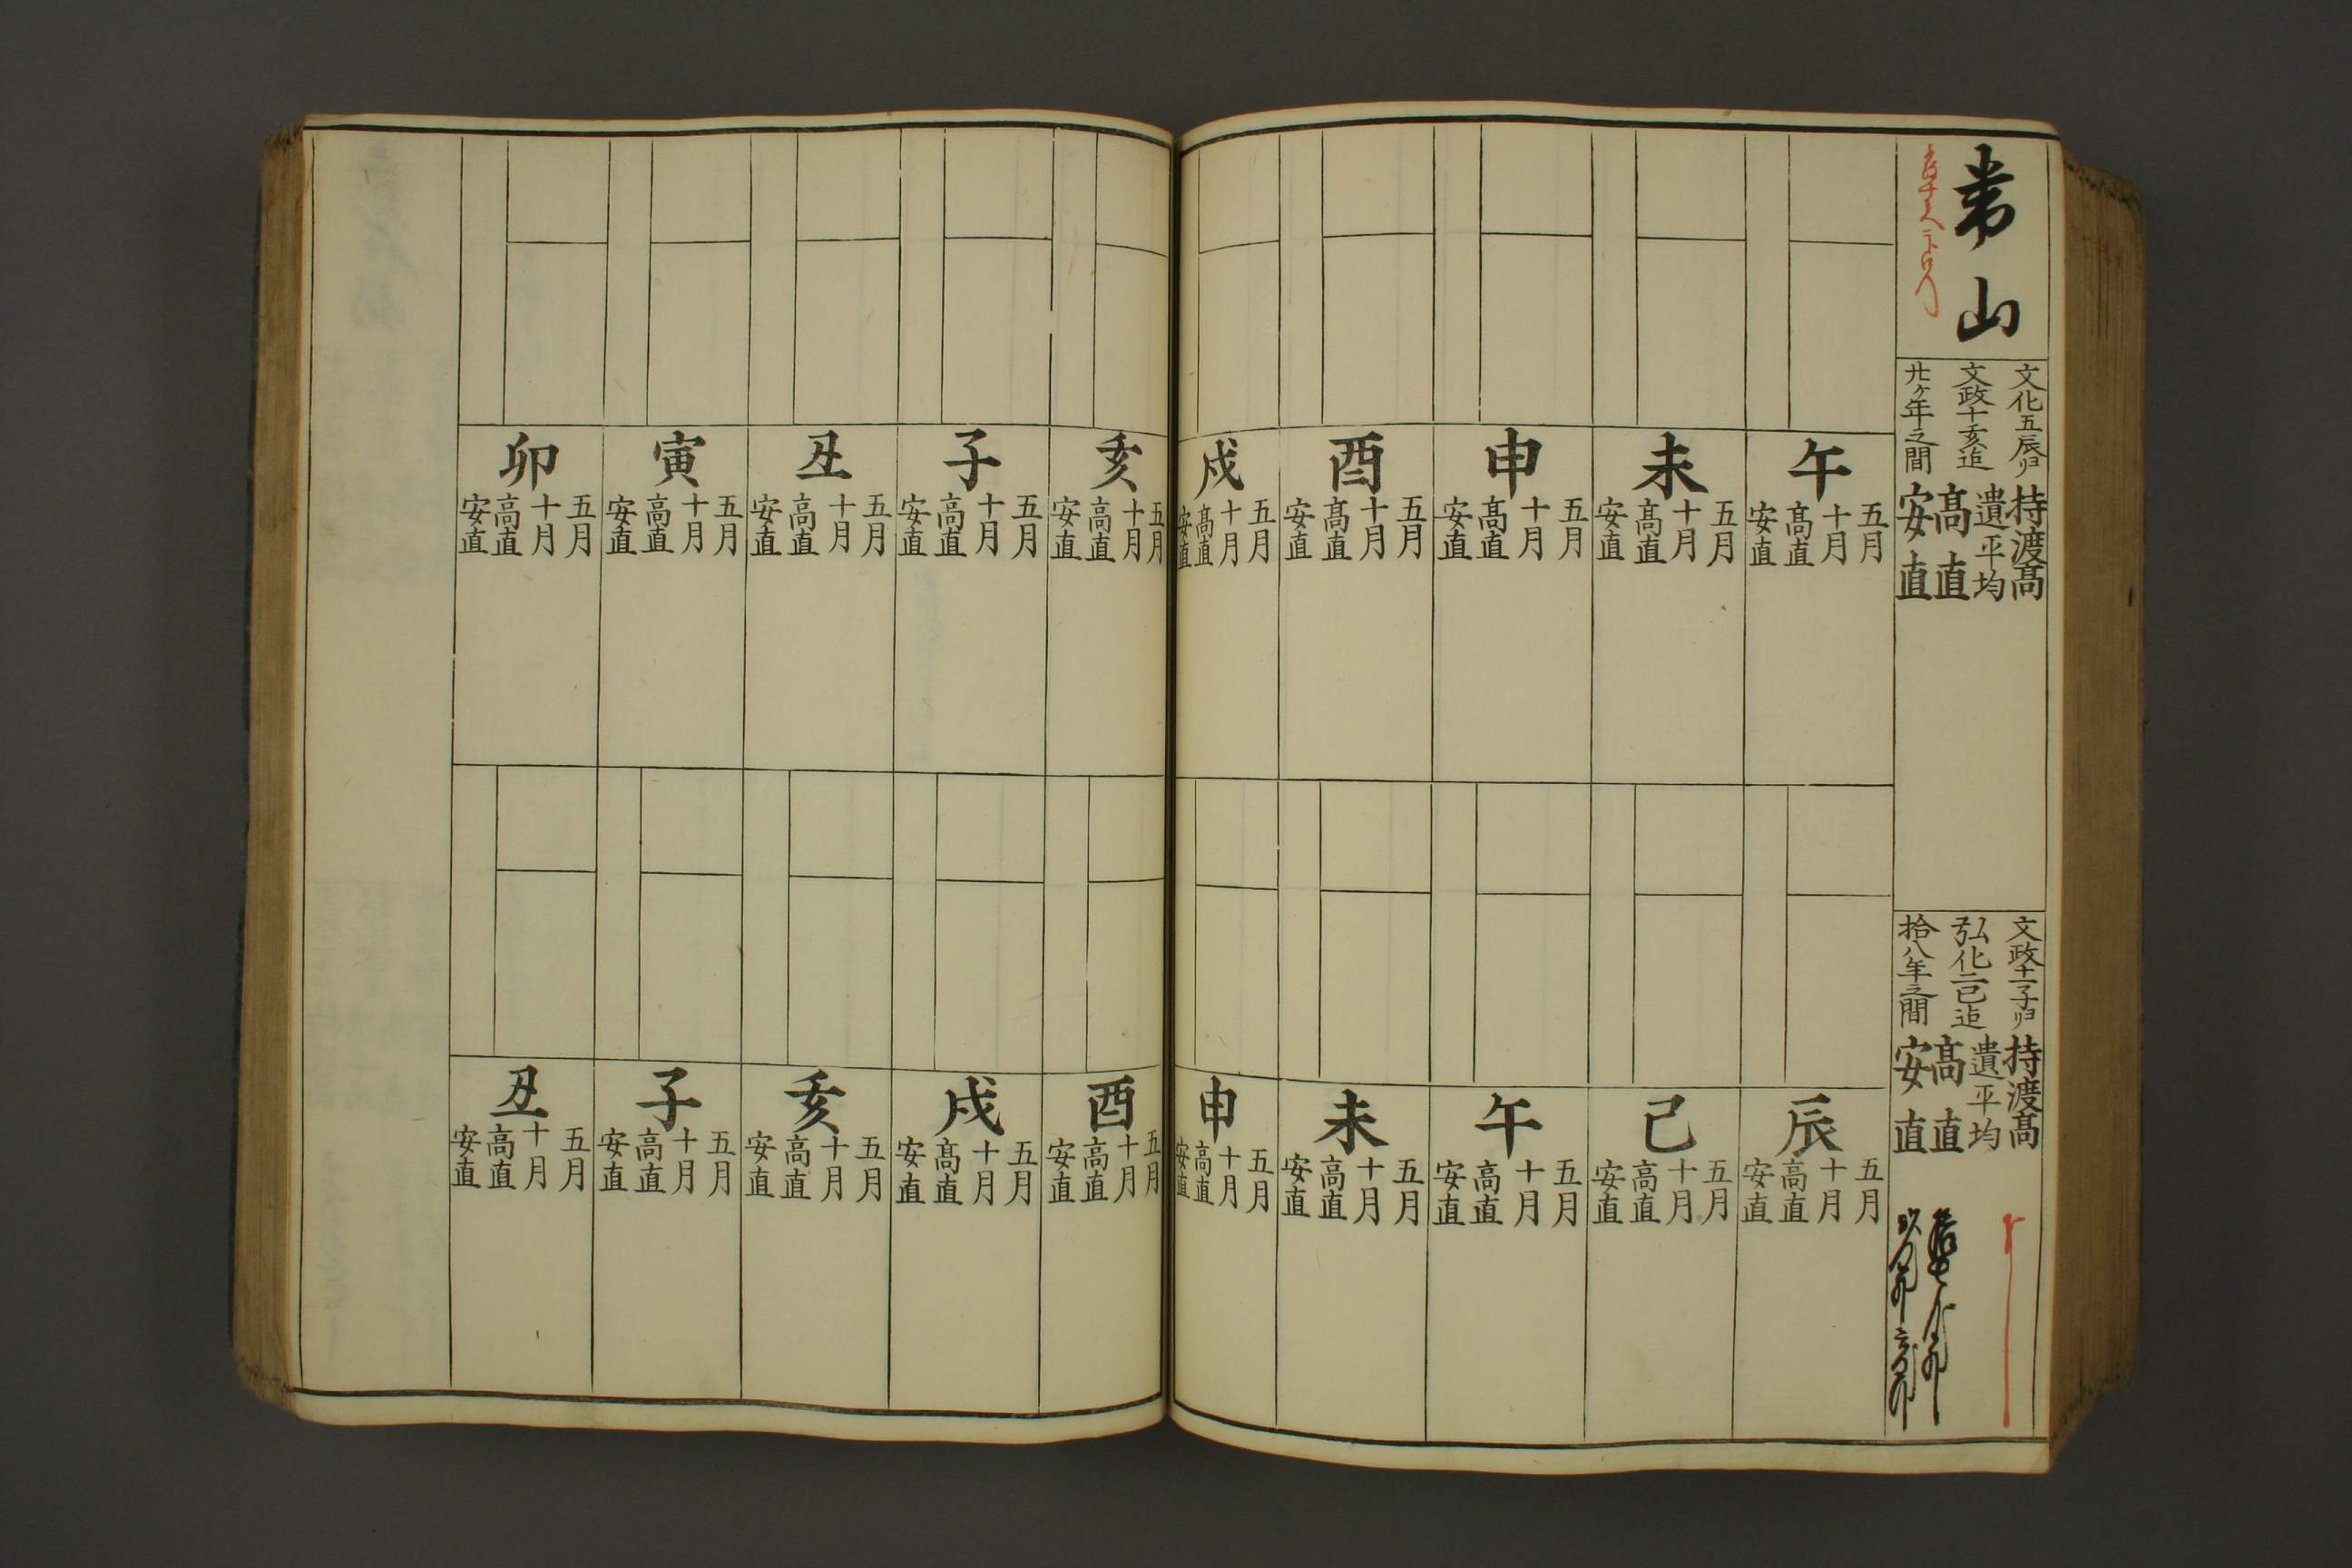 常山
文化五辰ゟ
文政十亥迄
廿ヶ年之間
持渡髙
遺平均
髙直
安直
文政十一子ゟ
弘化二巳迄
拾八年之間
持渡髙
遺平均
髙直
安直
午
五月
十月
髙直
安直
未
五月
十月
髙直
安直
申
五月
十月
髙直
安直
酉
五月
十月
髙直
安直
戌
五月
十月
髙直
安直
亥
五月
十月
髙直
安直
子
五月
十月
髙直
安直
丑
五月
十月
髙直
安直
寅
五月
十月
髙直
安直
卯
五月
十月
髙直
安直
辰
五月
十月
髙直
安直
巳
五月
十月
髙直
安直
午
五月
十月
髙直
安直
未
五月
十月
髙直
安直
申
五月
十月
髙直
安直
酉
五月
十月
髙直
安直
戌
五月
十月
髙直
安直
亥
五月
十月
髙直
安直
子
五月
十月
髙直
安直
丑
五月
十月
髙直
安直